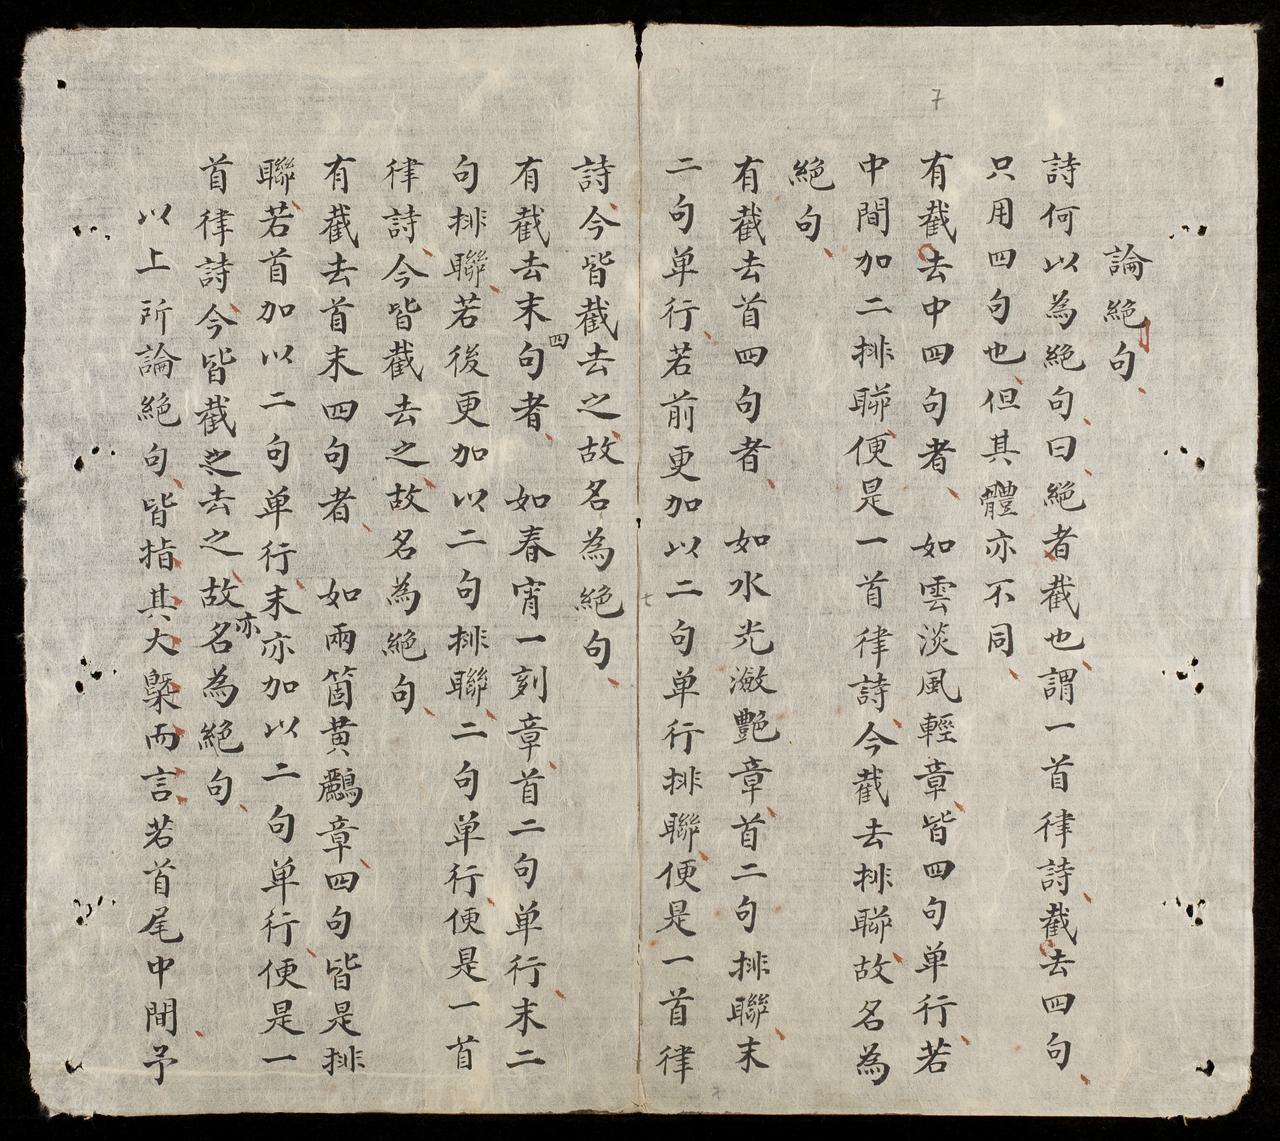 7
論絕句
詩何以為絕句曰絕者截也謂一首律詩截去四句
只用四句也但其體亦不同
有截去中四句者 如雲淡風輕章皆四句单行若
中間加二排聮便是一首律詩今截去排聮故名為
絕句
有截去首四句者 如水光潋艷章首二句排聮末
二句单行若前更加以二句单行排聮便是一首律
詩今皆截去之故名為絕句
有截去末四句者 如春宵一刻章首二句单行末二
句排聮若後更加以二句排聮二句单行便是一首
律詩今皆截去之故名為絕句
有截去首末四句者 如兩箇黄鸝章四句皆是排
聮若首加以二句单行末亦加以二句单行便是一
首律詩今皆截之去之故亦名為絕句
以上所論絕句皆指其大槩而言若首尾中間予